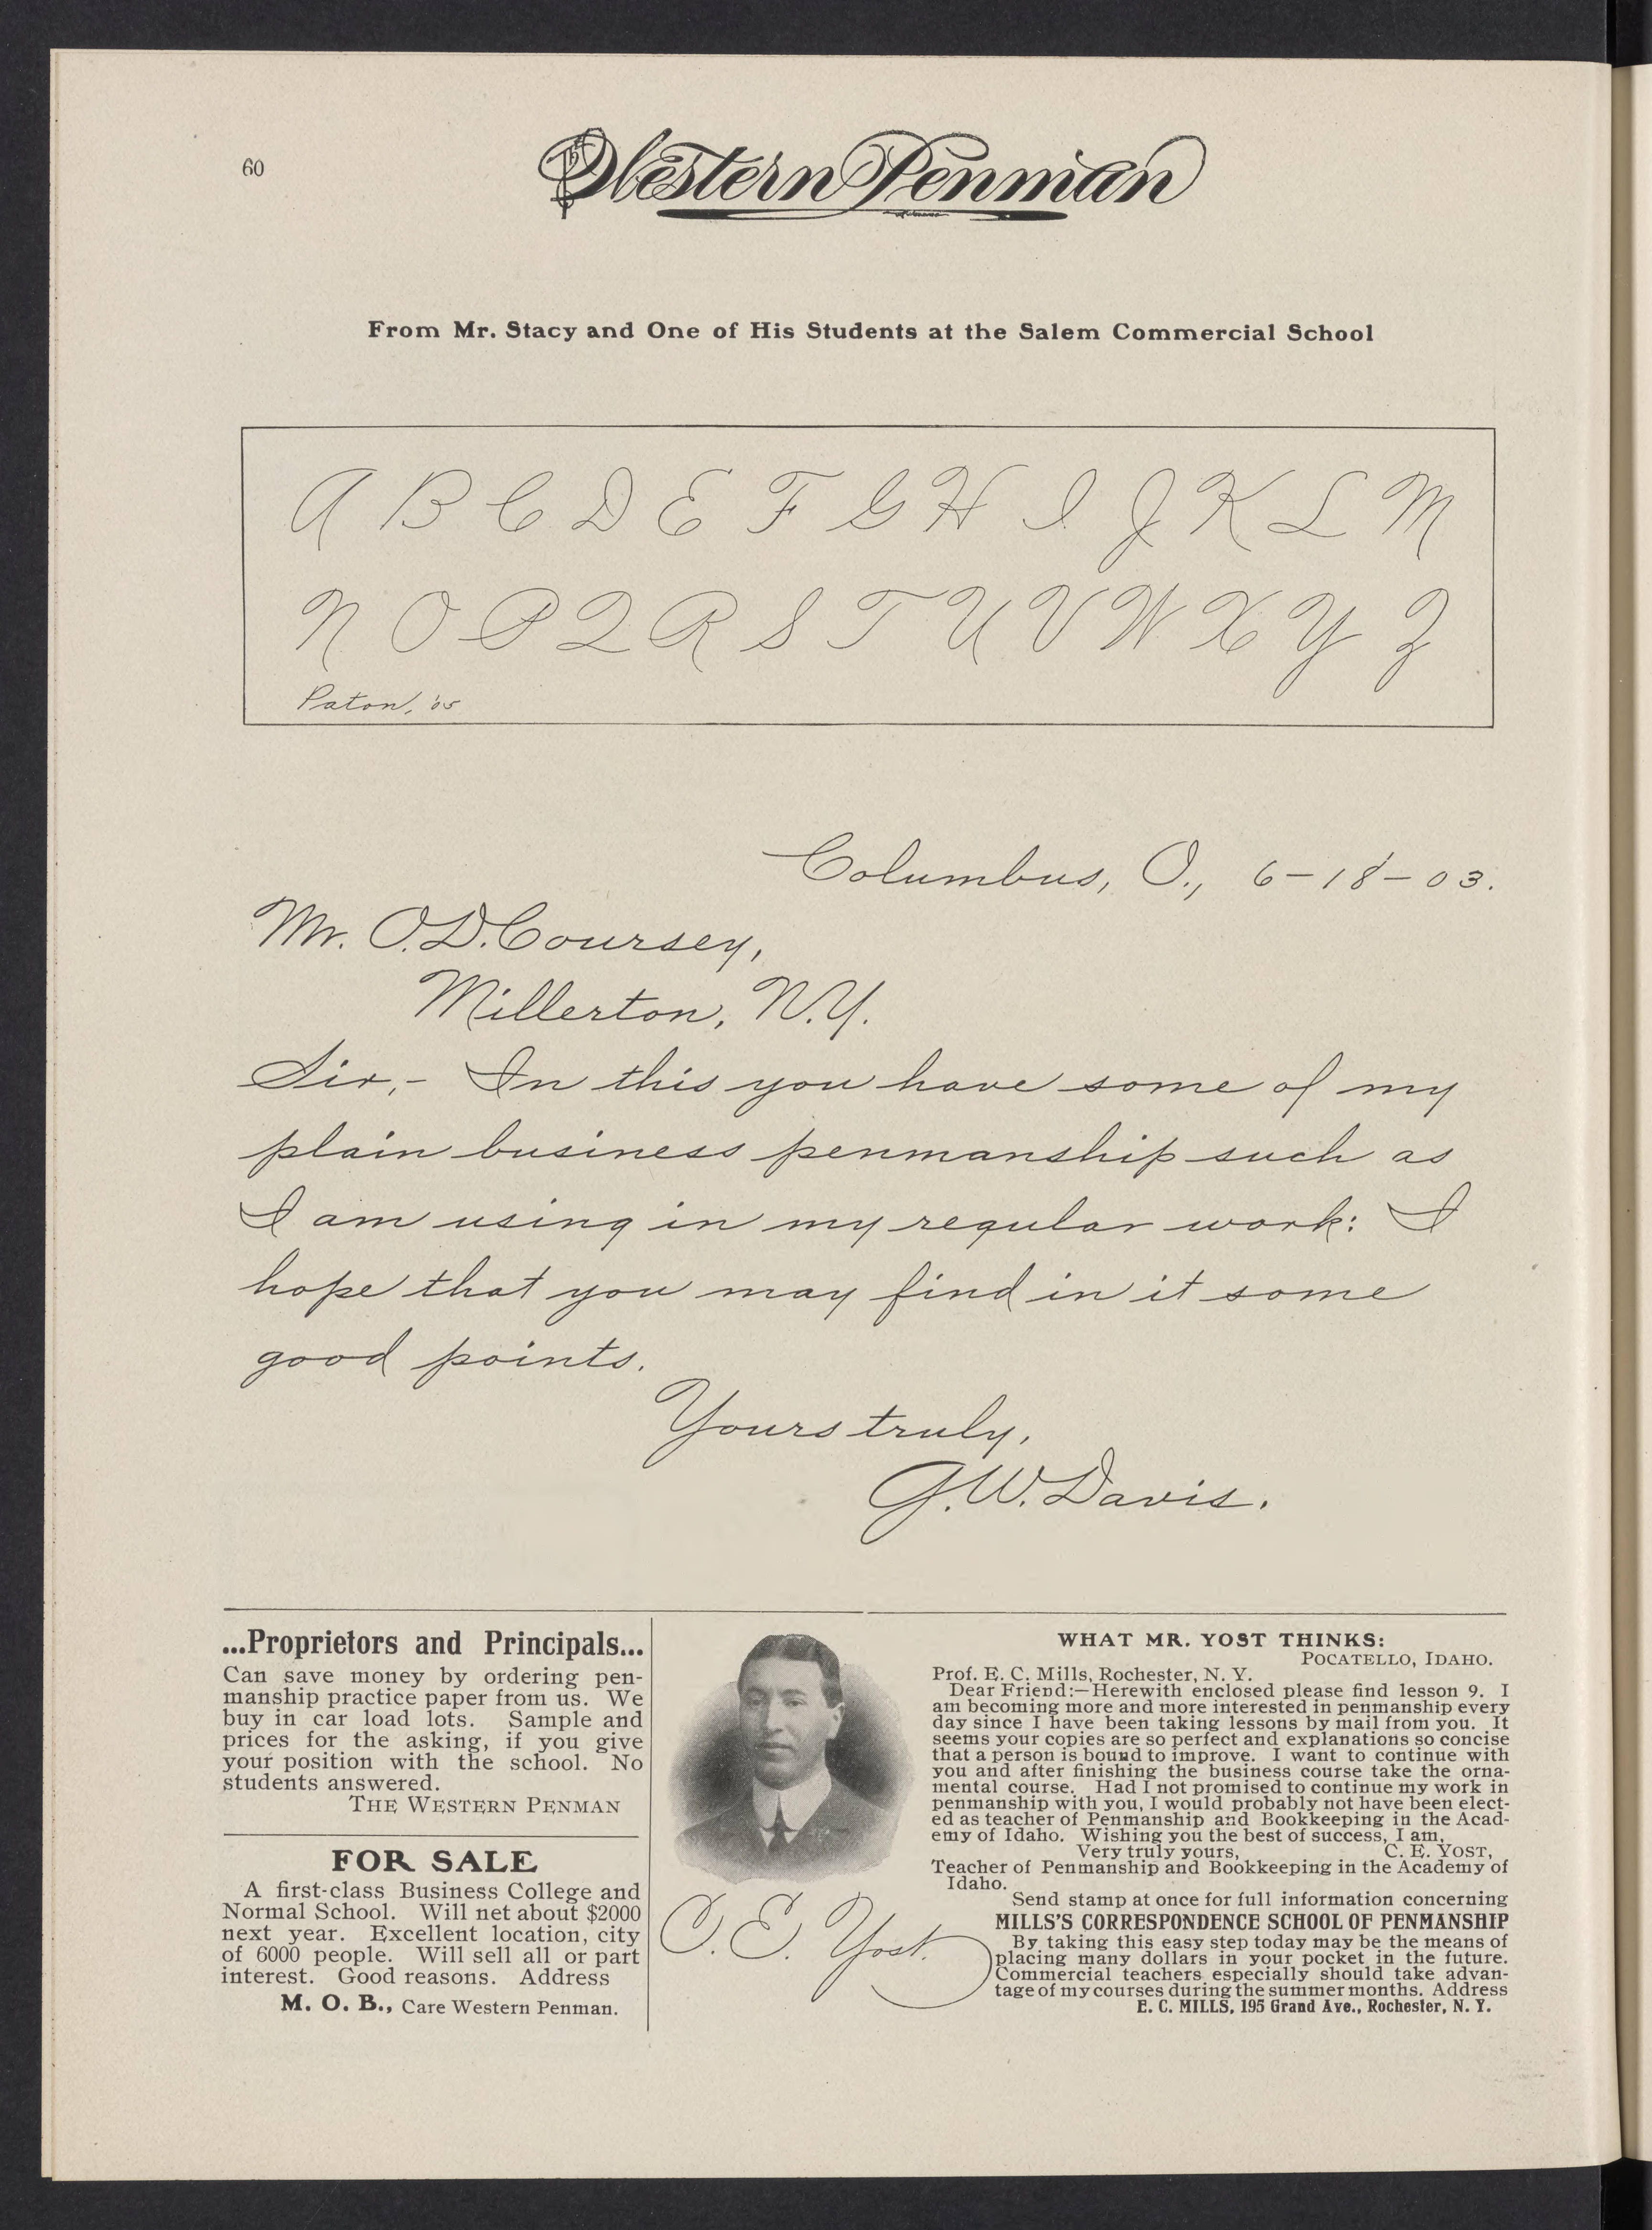 60
Western Penman
From Mr. Stacy and One of His Students at the Salem Commercial School
A B C D E F G H I J K L M
N O P Q R S T U V W X Y Z
Paton, '05
Columbus, O., 6-18-03.
Mr. O.D. Coursey,
Millerton, N.Y.
Sir,- In this you have some of my
plain business penmanship such as
I am using in my regular work: I
hope that you may find in it some
good points.
Yours truly,
G.W. Davis.
...Proprietors and Principals...
Can save money by ordering pen-
manship practice paper from us. We
buy in car load lots. Sample and
prices for the asking, if you give
your position with the school. No
students answered.
THE WESTERN PENMAN
FOR SALE
A first-class Business College and
Normal School. Will net about $2000
next year. Excellent location, city
of 6000 people. Will sell all or part
interest. Good reasons. Address
M. O. B., Care Western Penman.
C. E. Yost.
WHAT MR. YOST THINKS:
POCATELLO, IDAHO.
Prof. E. C. Mills, Rochester, N. Y.
Dear Friend:—Herewith enclosed please find lesson 9. I
am becoming more and more interested in penmanship every
day since I have been taking lessons by mail from you. It
seems your copies are so perfect and explanations so concise
that a person is bound to improve. I want to continue with
you and after finishing the business course take the orna-
mental course. Had I not promised to continue my work in
penmanship with you, I would probably not have been elect-
ed as teacher of Penmanship and Bookkeeping in the Acad-
emy of Idaho. Wishing you the best of success, I am,
Very truly yours, C. E. YOST,
Teacher of Penmanship and Bookkeeping in the Academy of
Idaho.
Send stamp at once for full information concerning
MILLS'S CORRESPONDENCE SCHOOL OF PENMANSHIP
By taking this easy step today may be the means of
placing many dollars in your pocket in the future.
Commercial teachers especially should take advan-
tage of my courses during the summer months. Address
E. C. MILLS, 195 Grand Ave., Rochester, N. Y.